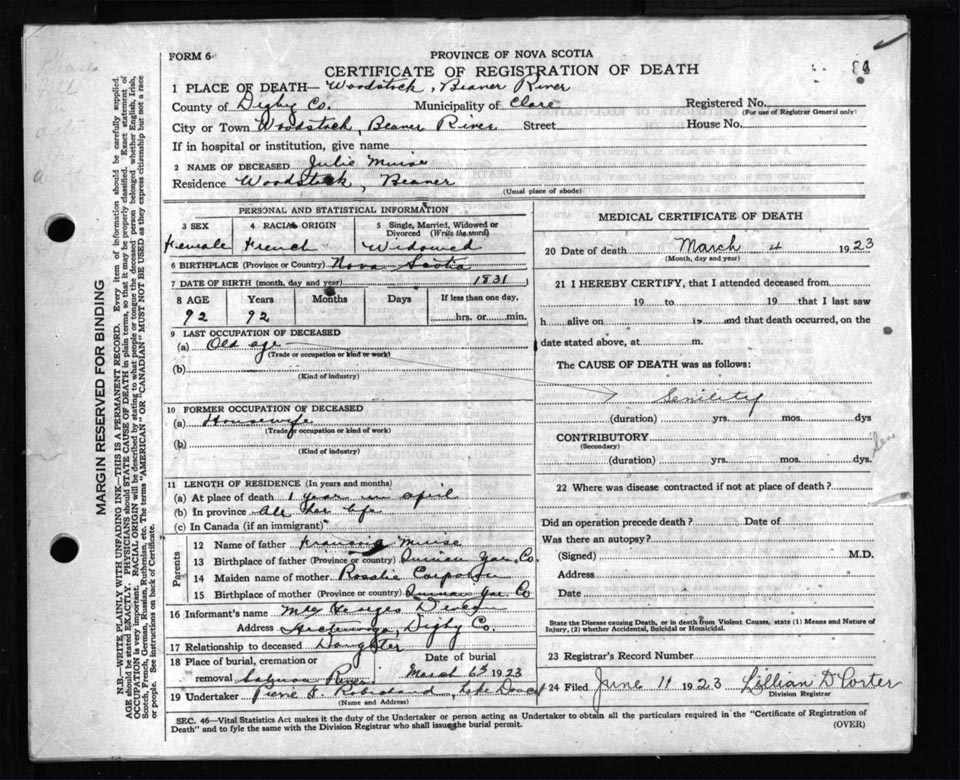 FORM 6
PROVINCE OF NOVA SCOTIA
CERTIFICATE OF REGISTRATION OF DEATH
1 PLACE OF DEATH— Woodstock, Beaver River
County of Digby Co. Municipality of Clare Registered No.
(For use of Registrar General only)
City or Town Woodstock, Beaver River Street House No.
If in hospital or institution, give name
2 NAME OF DECEASED Julie Muise
Residence Woodstock, Beaver
(Usual place of abode)
PERSONAL AND STATISTICAL INFORMATION
3 SEX 4 RACIAL ORIGIN 5 Single, Married, Widowed or Divorced (Write the word)
Female French Widowed
6 BIRTHPLACE (Province or Country) Nova Scotia
7 DATE OF BIRTH (month, day and year) 1831
8 AGE Years Months Days If less than one day,
92 92 hrs. or min.
9 LAST OCCUPATION OF DECEASED
(a) Old age
(Trade or occupation or kind or work)
(b)
(Kind of industry)
10 FORMER OCCUPATION OF DECEASED
(a) Housewife
(Trade or occupation or kind of work)
(b)
(Kind of industry)
11 LENGTH OF RESIDENCE (In years and months)
(a) At place of death 1 year in april
(b) In province All her life
(c) In Canada (if an immigrant)
Parents
12 Name of father Francis Muise
13 Birthplace of father (Province or Country) Quinan Yar. Co.
14 Maiden name of mother Rosalie
15 Birthplace of mother (Province or Country) Quinan Yar. Co
16 Informant's name Mde Georges
Address Digby Co.
17 Relationship to deceased Daughter
18 Place of burial, cremation or removal Salmon River Date of burial March 6th 1923
19 Undertaker
(Name and Address)
MEDICAL CERTIFICATE OF DEATH
20 Date of death March 4 1923
(Month, day and year)
21 I HEREBY CERTIFY, that I attended deceased from
19 to 19 that I last saw
h alive on 19 and that death occurred, on the
date stated above, at m.
The CAUSE OF DEATH was as follows:
Senility
(duration) yrs. mos. dys
CONTRIBUTORY
(Secondary)
(duration) yrs. mos. dys.
22 Where was disease contracted if not at place of death?
Did an operation precede death? Date of
Was there an autopsy?
(Signed) M.D.
Address
Date
State the Disease causing Death, or in death from Violent Causes, state (1) Means and Nature of
Injury, (2) whether Accidental, Suicidal or Homicidal.
23 Registrar's Record Number
24 Filed June 11 1923 Lillian D Porter
Division Registrar
SEC. 46—Vital Statistics Act makes it the duty of the Undertaker or person acting as Undertaker to obtain all the particulars required in the "Certificate of Registration of
Death" and to fyle the same with the Division Registrar who shall issue the burial permit. (OVER)
MARGIN RESERVED FOR BINDING
N.B.—WRITE PLAINLY WITH UNFADING INK—THIS IS A PERMANENT RECORD. Every item of information should be carefully supplied.
AGE should be stated EXACTLY. PHYSICIANS should STATE CAUSE OF DEATH in plain terms, so that it may be properly classified. Exact statement of
OCCUPATION is very important. RACIAL ORIGIN will be described by stating to what people or tongue the deceased person belonged whether English, Irish,
Scotch, French, German, Russian, Ruthenian, etc. The terms "AMERICAN" OR "CANADIAN" MUST NOT BE USED as they express citizenship but not a race
or people. See instructions on back of Certificate.